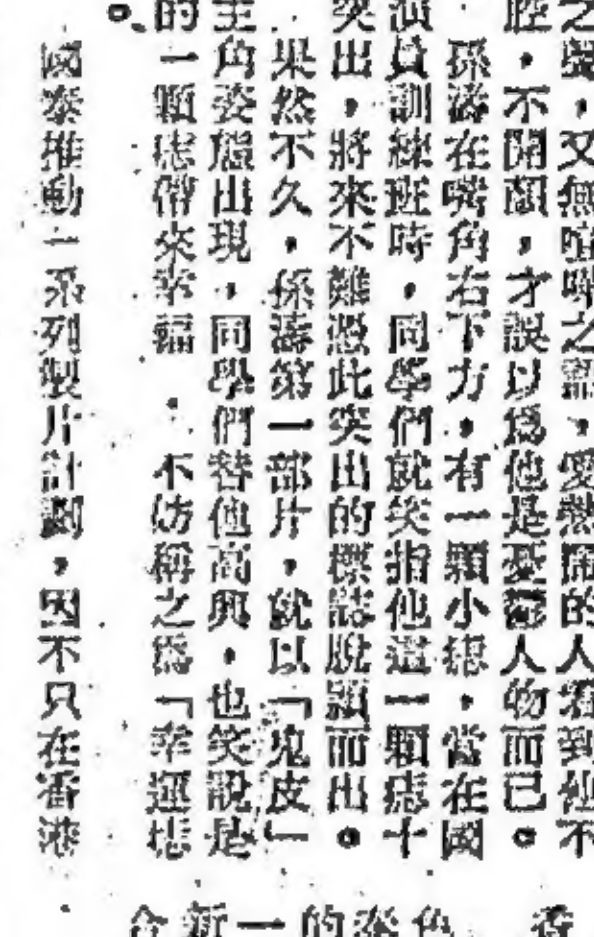 之癖，又無喧嘩之語，愛熱鬧的人看到他不
腔，不開顏，才誤以為他是憂鬱人物而已。
孫濤在嘴角右下方，有一顆小痣，當在國
演員訓練班時，同學們就笑指他這一顆痣十
突出，將來不難憑此突出的標誌脫穎而出。
果然不久，孫濤第一部片，就以「鬼皮」
主角姿態出現，同學們替他高興，也笑說是
的一顆痣帶來幸福 不妨稱之為「幸運痣
。
國泰推動一系列製片計劃，因不只在香港